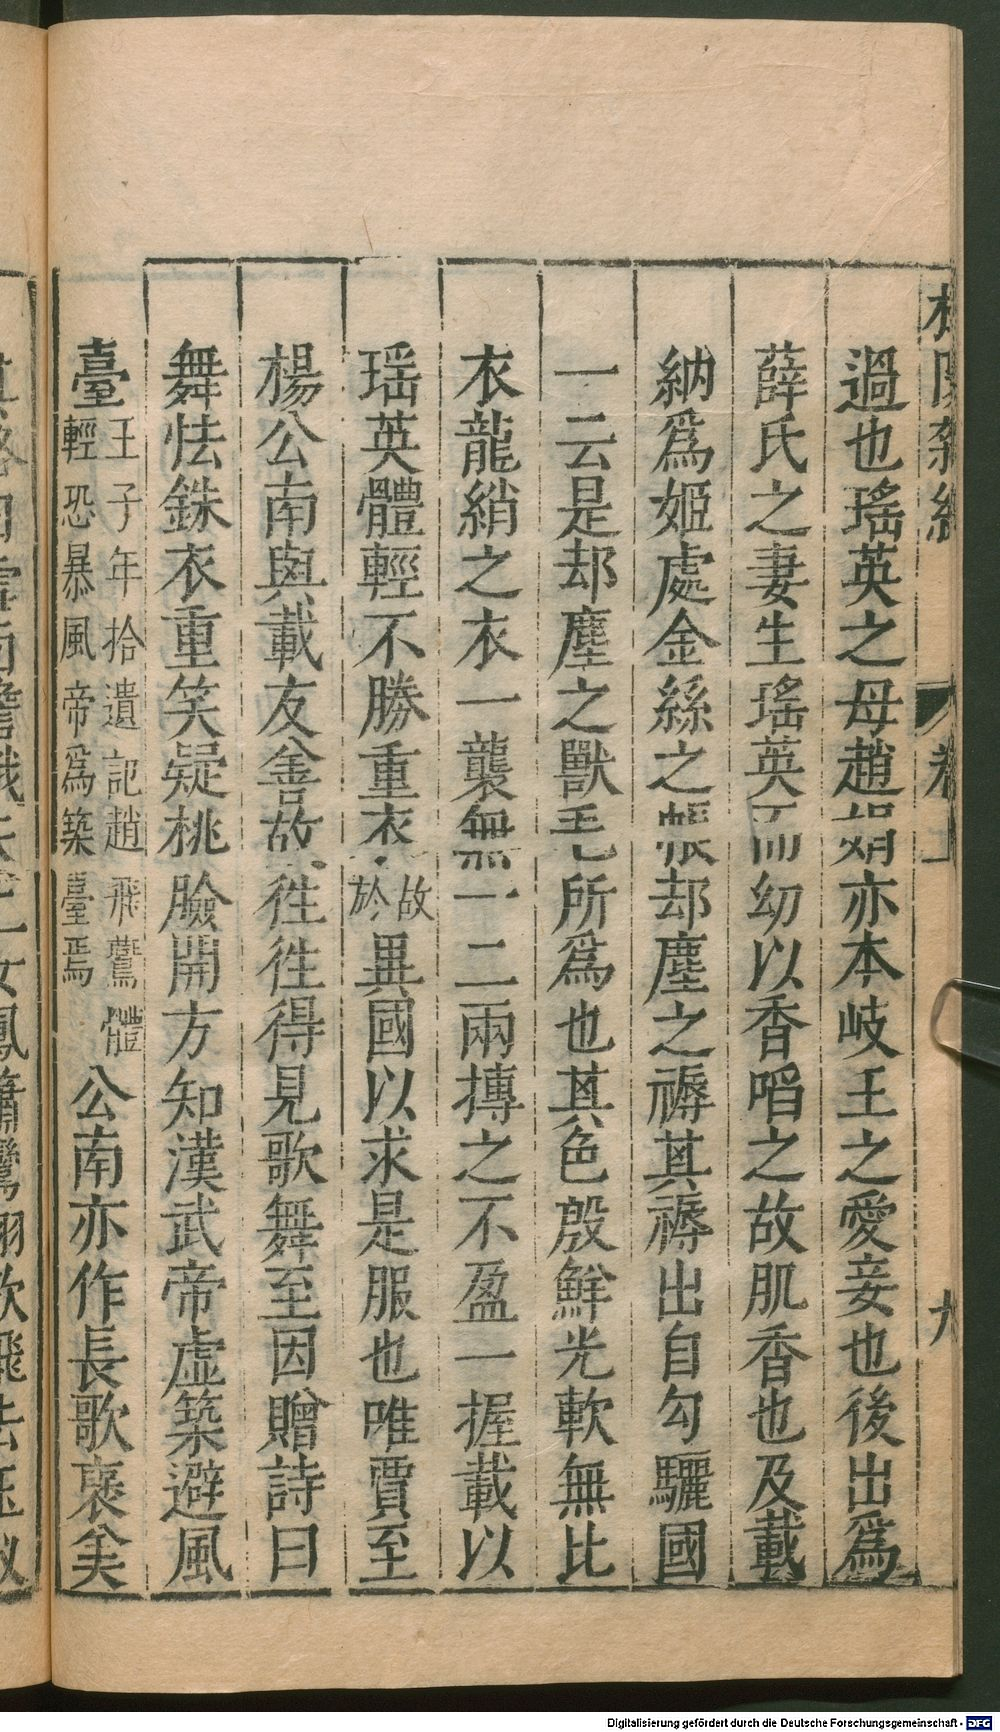 過也瑤英之母趙娟亦本岐王之愛妾也後出爲
薛氏之妻生瑤英而幼以香啗之故肌香也及載
納爲姬處金絲之帳却塵之褥其褥出自勾驪國
一云是却塵之獸毛所爲也其色殷鮮光軟無比
衣龍綃之衣一襲無一二兩摶之不盈一握載以
瑤英體輕不勝重衣故於異國以求是服也唯賈至
楊公南與載友善故徃徃得見歌舞至因贈詩曰
舞怯銖衣重笑疑桃臉開方知漢武帝虛築避風
臺王子年拾遺記趙飛鷰體輕恐暴風帝爲築臺焉公南亦作長歌褒美
卷
九
Digitalisierung gefördert durch die Deutsche Forschungsgemeinschaft - DFG